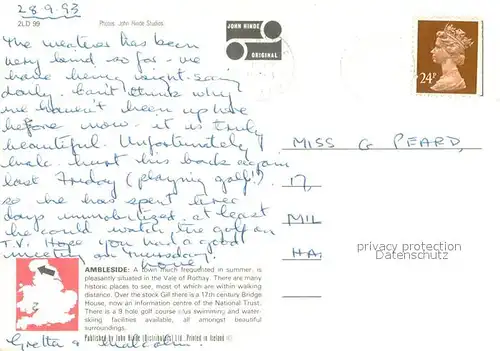 28.9.93
2LD 99
Photos: John Hinde Studios
JOHN HINDE
ORIGINAL
24P
The weather has been
very kind so far - we
have being sight-seeing
daily. Can't think why
we haven't been up here
before now - it is truly
beautiful. Unfortunately
Malc. hurt his back again
last Friday (playing golf!).
so he has spent three
days immobilised. at least
he could watch the golf on
T.V. Hope you had a good
meeting on Tuesday.
Love
Gretta & Malcolm.
MISS G PEARD,
17
MIL
HA
privacy protection
Datenschutz
AMBLESIDE: A town much frequented in summer, is
pleasantly situated in the Vale of Rothay. There are many
historic places to see, most of which are within walking
distance. Over the stock Gill there is a 17th century Bridge
House, now an information centre of the National Trust.
There is a 9 hole golf course plus swimming and water-
skiing facilities available, all amongst beautiful
surroundings.
Published by John Hinde (Distributors) Ltd. Printed in Ireland